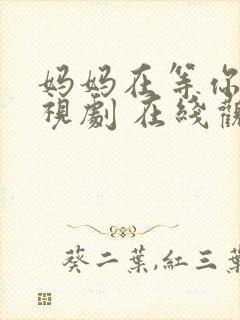 妈妈在等你
視劇 在綫觀
葵二葉,紅三葉